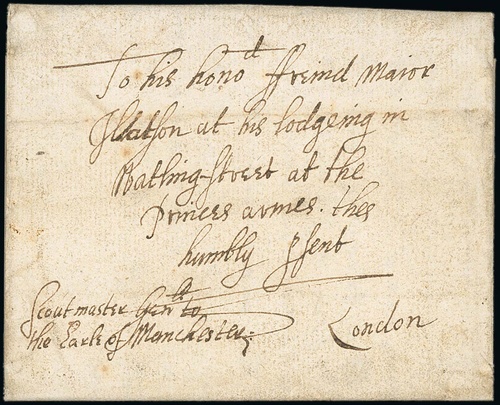 To his hono^d ffreind Maior
Watson at his lodgeing in
Watling-street at the
Princes armes. thes
humbly p̱sent
Scoutmaster Gen^ll to
the Earle of Manchester
London